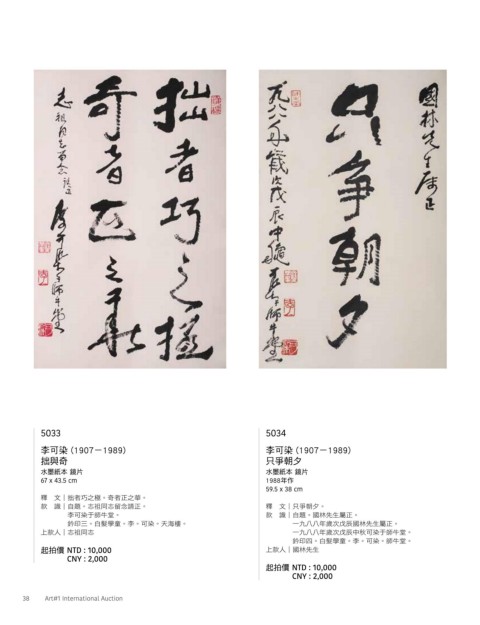 拙者巧之極
奇者正之華
志祖同志留念請正
李可染于師牛堂
國林先生屬正
只爭朝夕
一九八八年歲次戊辰中秋可染于師牛堂
5033
李可染（1907－1989）
拙與奇
水墨紙本 鏡片
67 x 43.5 cm
釋　文｜拙者巧之極。奇者正之華。
款　識｜自題。志祖同志留念請正。
李可染于師牛堂。
鈐印三。白髮學童。李。可染。天海樓。
上款人｜志祖同志
起拍價 NTD : 10,000
CNY : 2,000
5034
李可染（1907－1989）
只爭朝夕
水墨紙本 鏡片
1988年作
59.5 x 38 cm
釋　文｜只爭朝夕。
款　識｜自題。國林先生屬正。
一九八八年歲次戊辰國林先生屬正。
一九八八年歲次戊辰中秋可染于師牛堂。
鈐印四。白髮學童。李。可染。師牛堂。
上款人｜國林先生
起拍價 NTD : 10,000
CNY : 2,000
38 Art#1 International Auction